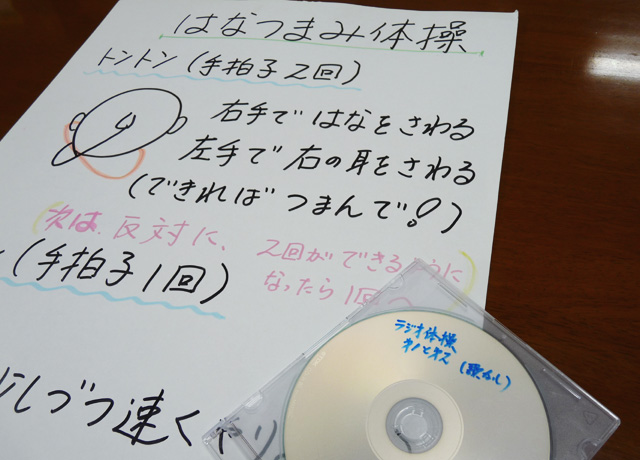 はなつまみ体操
トントン(手拍子2回)
右手ではなをさわる
左手で右の耳をさわる
(できればつまんで!)
(次は、反対に、2回ができるように
なったら1回へ
(手拍子1回)
しづつ速く
ラジオ体操
(歌なし)